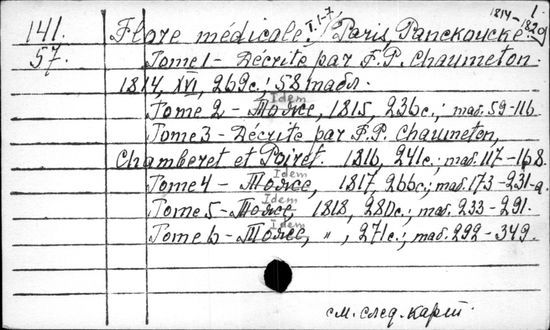 1814–1820 1.
141. Flore médicale. T. 1-7, Paris, Panckoucke
57. Tome 1 – Décrite par F. P. Chaumeton.
1814, XVI, 269 c.; 58 табл.
Idem
Tome 2 – Тоже, 1815, 236 c.; таб. 59–116
Tome 3 – Décrite par F. P. Chaumeton,
Chamberet et Poiret. 1816, 241 c.; таб. 117–168.
Idem
Tome 4 – Тоже, 1817, 266 c.; таб. 173–231-a.
Idem
Tome 5 – Тоже, 1818, 280 c.; таб. 233–291.
Tome 6 – Тоже, " , 271 c.; таб. 292–349.
Idem
см. след. карт.